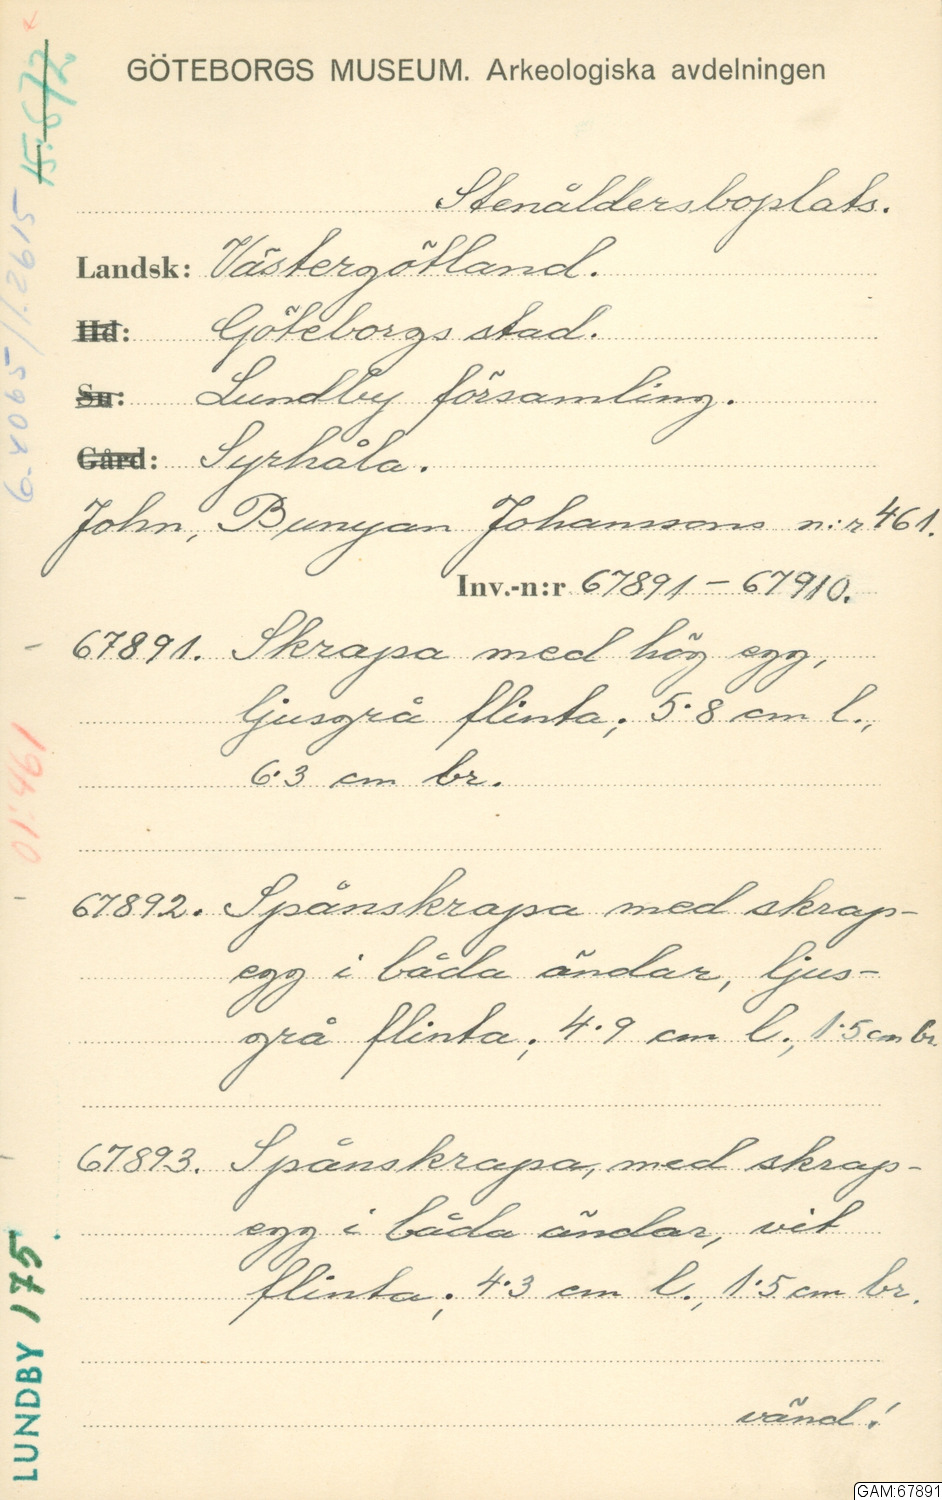 GÖTEBORGS MUSEUM. Arkeologiska avdelningen
Stenåldersboplats.
Landsk: Västergötland.
Hd: Göteborgs stad.
Sn: Lundby församling.
Gård: Syrhåla.
John, Bunyan Johanssons n:r 461.
Inv.-n:r 67891 – 67910.
67891. Skrapa med hög egg,
ljusgrå flinta; 5·8 cm l.,
6·3 cm br.
67892. Spånskrapa med skrap-
egg i båda ändar, ljus-
grå flinta; 4·9 cm l., 1·5 cm br.
67893. Spånskrapa, med skrap-
egg i båda ändar, vit
flinta; 4·3 cm l., 1·5 cm br.
vänd!
LUNDBY 175
01:461
15:672
GAM:67891